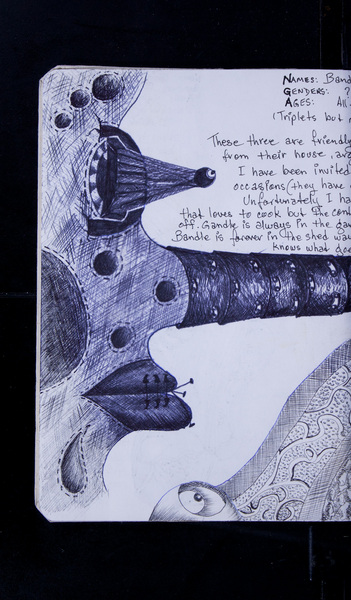 NAMES: Band
GENDERS: ?
AGES: All
(Triplets but
These three are friendly
from their house, and
I have been invited
occasions (they have
Unfortunately I ha
that loves to cook but she cont
off. Gandle is always in the gar
Bandle is forever in the shed was
knows what doe